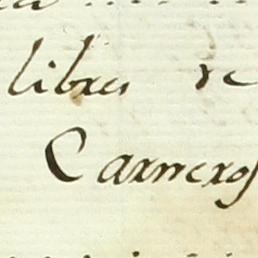 libres de
Carneros